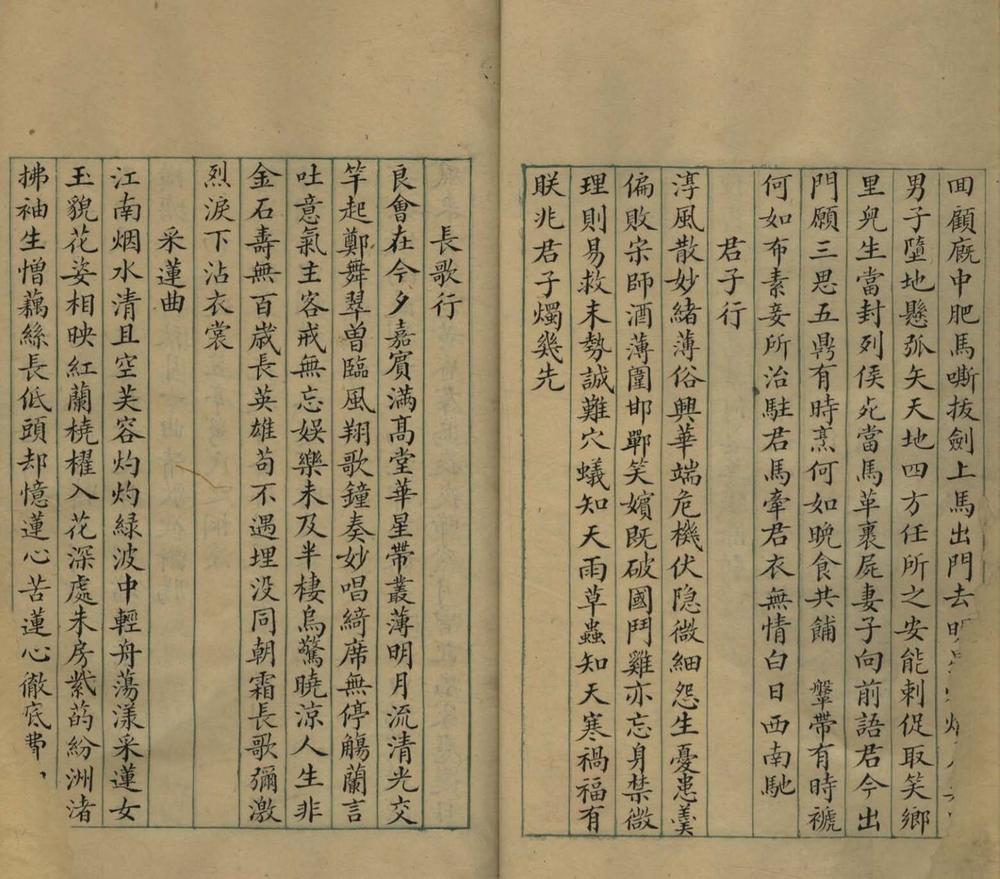 回顧廐中肥馬嘶拔劍上馬出門去明
男子墮地懸弧矢天地四方任所之安能刺促取笑鄉
里兒生當封列侯死當馬革裹屍妻子向前語君今出
門願三思五鼎有時烹何如晚食共餔　鞶帶有時褫
何如布素妾所治駐君馬牽君衣無情白日西南馳
君子行
淳風散妙緒薄俗興華端危機伏隐微細怨生憂患羹
偏敗宋師酒薄圍邯鄲笑嬪既破國鬥雞亦忘身禁微
理則易救末勢誠難穴蟻知天雨草蟲知天寒禍福有
朕兆君子燭幾先
長歌行
良會在今夕嘉賓滿髙堂華星帶叢薄明月流清光交
竿起鄭舞翠曽臨風翔歌鐘奏妙唱綺席無停觴蘭言
吐意氣主客戒無忘娛樂未及半棲烏驚曉涼人生非
金石壽無百歳長英雄苟不遇埋没同朝霜長歌彌激
烈淚下沾衣裳
采蓮曲
江南烟水清且空芙容灼灼緑波中輕舟蕩漾采蓮女
玉貌花姿相映紅蘭橈櫂入花深處朱房紫菂紛洲渚
拂袖生憎藕絲長低頭却憶蓮心苦蓮心徹底費